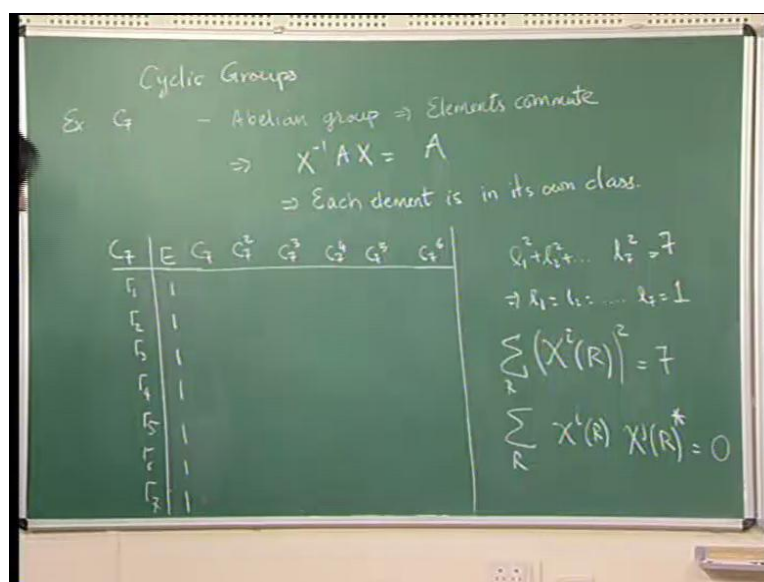 Cyclic Groups
Ex C₇ - Abelian group ⇒ Elements commute
⇒ X⁻¹ A X = A
⇒ Each element is in its own class.
C₇ E C₇ C₇² C₇³ C₇⁴ C₇⁵ C₇⁶
Γ₁ 1
Γ₂ 1
Γ₃ 1
Γ₄ 1
Γ₅ 1
Γ₆ 1
Γ₇ 1
l₁² + l₂² + ... l₇² = 7
⇒ l₁ = l₂ = .... l₇ = 1
∑_R (χⁱ(R))² = 7
∑_R χⁱ(R) χʲ(R)* = 0